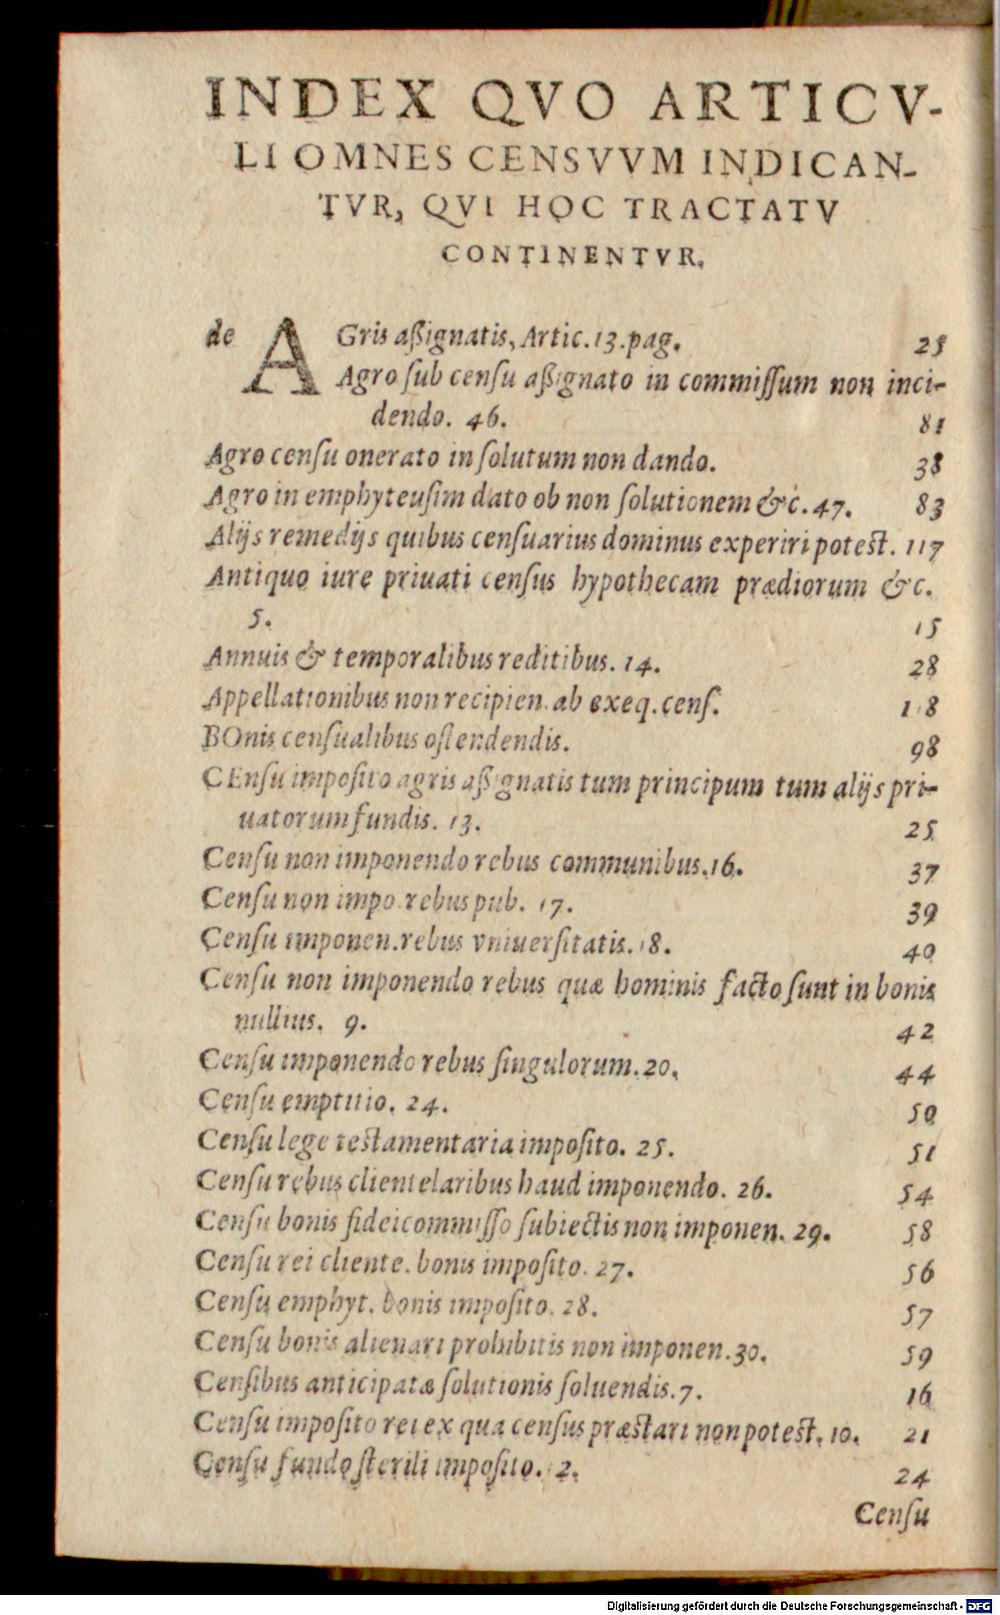 INDEX QVO ARTICV-
LI OMNES CENSVVM INDICAN-
TVR, QVI HOC TRACTATV
CONTINENTVR.
de AGris aßignatis, Artic. 13. pag. 25
Agro ſub cenſu aßignato in commiſſum non inci-
dendo. 46. 81
Agro cenſu onerato in ſolutum non dando. 38
Agro in emphyteuſim dato ob non ſolutionem &c. 47. 83
Alijs remedijs quibus cenſuarius dominus experiri poteſt. 117
Antiquo iure priuati cenſus hypothecam prædiorum &c.
5. 15
Annuis & temporalibus reditibus. 14. 28
Appellationibus non recipien. ab exeq. cenſ. 118
BOnis cenſualibus oſtendendis. 98
CEnſu impoſito agris aßignatis tum principum tum alijs pri-
uatorum fundis. 13. 25
Cenſu non imponendo rebus communibus. 16. 37
Cenſu non impo. rebus pub. 17. 39
Cenſu imponen. rebus vniuerſitatis. 18. 40
Cenſu non imponendo rebus quæ hominis facto ſunt in bonis
nullius. 9. 42
Cenſu imponendo rebus ſingulorum. 20. 44
Cenſu emptitio. 24. 50
Cenſu lege teſtamentaria impoſito. 25. 51
Cenſu rebus clientelaribus haud imponendo. 26. 54
Cenſu bonis fideicommiſſo ſubiectis non imponen. 29. 58
Cenſu rei cliente. bonis impoſito. 27. 56
Cenſu emphyt. bonis impoſito. 28. 57
Cenſu bonis alienari prohibitis non imponen. 30. 59
Cenſibus anticipatæ ſolutionis ſoluendis. 7. 16
Cenſu impoſito rei ex qua cenſus præſtari non poteſt. 10. 21
Cenſu fundo ſterili impoſito. 12. 24
Cenſu
Digitalisierung gefördert durch die Deutsche Forschungsgemeinschaft - DFG